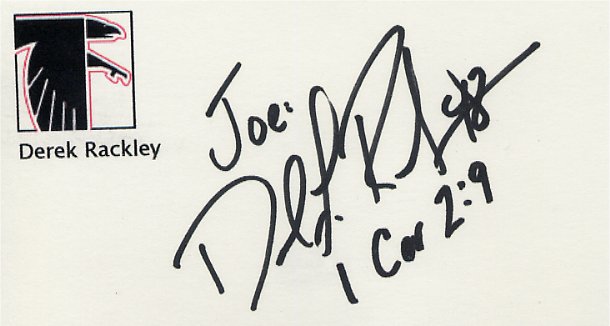 Derek Rackley
Joe:
D. R 48
1 Cor 2:9